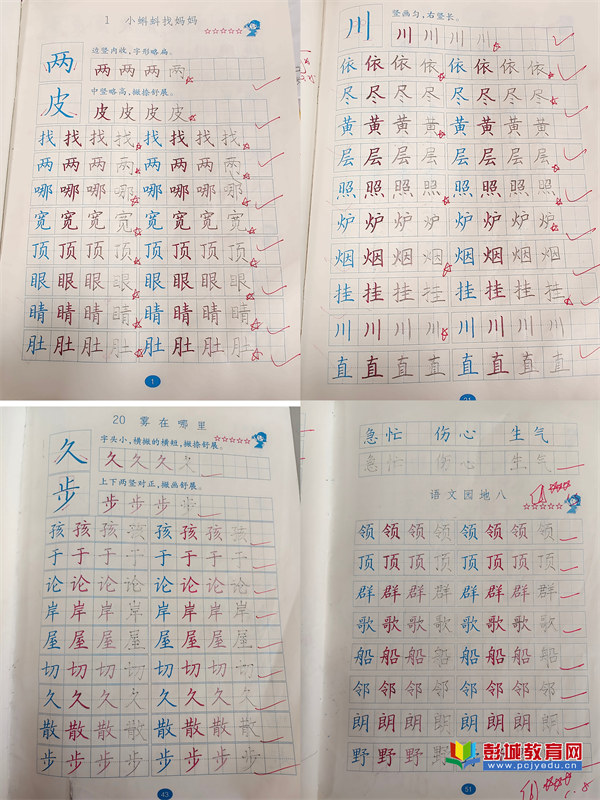 1 小蝌蚪找妈妈
两
边竖内收，字形略扁。
两 两 两 两
皮
中竖略高，撇捺舒展。
皮 皮 皮 皮
找 找 找 找 找 找 找 找
两 两 两 两 两 两 两 两
哪 哪 哪 哪 哪 哪 哪 哪
宽 宽 宽 宽 宽 宽 宽 宽
顶 顶 顶 顶 顶 顶 顶 顶
眼 眼 眼 眼 眼 眼 眼 眼
睛 睛 睛 睛 睛 睛 睛 睛
肚 肚 肚 肚 肚 肚 肚 肚
1
川
竖画匀，右竖长。
川 川 川 川
依 依 依 依 依 依 依 依
尽 尽 尽 尽 尽 尽 尽 尽
黄 黄 黄 黄 黄 黄 黄 黄
层 层 层 层 层 层 层 层
照 照 照 照 照 照 照 照
炉 炉 炉 炉 炉 炉 炉 炉
烟 烟 烟 烟 烟 烟 烟 烟
挂 挂 挂 挂 挂 挂 挂 挂
川 川 川 川 川 川 川 川
直 直 直 直 直 直 直 直
20 雾在哪里
久
字头小，横撇的横短，撇捺舒展。
久 久 久 久
步
上下两竖对正，撇画舒展。
步 步 步 步
孩 孩 孩 孩 孩 孩 孩 孩
于 于 于 于 于 于 于 于
论 论 论 论 论 论 论 论
岸 岸 岸 岸 岸 岸 岸 岸
屋 屋 屋 屋 屋 屋 屋 屋
切 切 切 切 切 切 切 切
久 久 久 久 久 久 久 久
散 散 散 散 散 散 散 散
步 步 步 步 步 步 步 步
43
急忙 伤心 生气
急忙 伤心 生气
语文园地八
领 领 领 领 领 领 领 领
顶 顶 顶 顶 顶 顶 顶 顶
群 群 群 群 群 群 群 群
歌 歌 歌 歌 歌 歌 歌 歌
船 船 船 船 船 船 船 船
邻 邻 邻 邻 邻 邻 邻 邻
朗 朗 朗 朗 朗 朗 朗 朗
野 野 野 野 野 野
51
彭城教育网
www.pcjyedu.cn